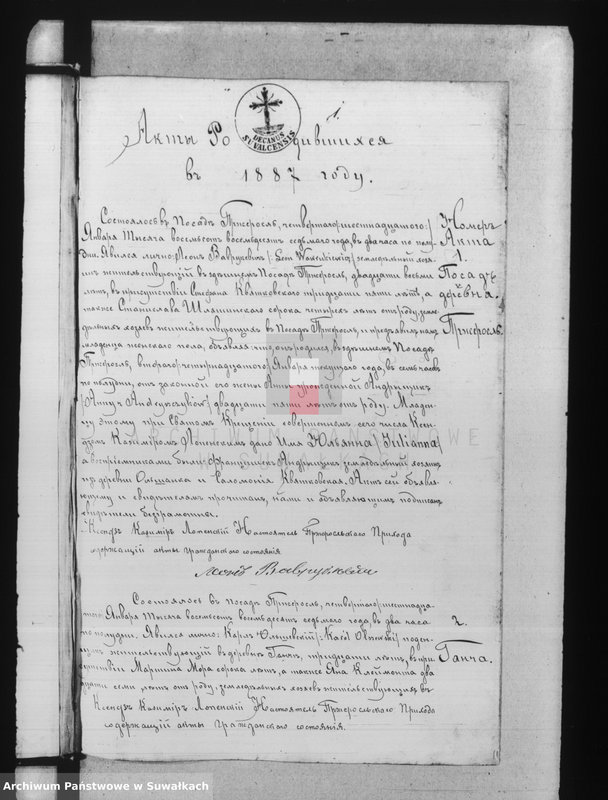 1.
Акты Родившихся
DECANUS SUVALCENSIS
въ 1887 году.
Номеръ
Акта
1.
Посадъ
деревня.
Состоялось въ Посадѣ Пржеросль, четвертаго/:шестнадцатого:/
Января тысяча восемьсотъ восемьдесятъ седьмого года, въ два часа по полу-
дни. Явился лично: Леонъ
земледѣльный хозя-
инъ жительствующій въ здѣшнемъ Посадѣ Пржеросль, двадцати восьми
лѣтъ, въ присутствіи Стефана Квятковскаго тридцати пяти лѣтъ, а
также Станислава
сорока четырехъ лѣтъ отъ роду, земле-
дѣльныхъ хозяевъ жительствующихъ въ Посадѣ Пржеросль, и предъявилъ намъ
младенца женскаго пола, объявляя что, онъ родился, въ здѣшнемъ Посадѣ
Пржеросль, второго/четырнадцатого/ Января текущаго года, въ семь часовъ
по полудни, отъ законной его жены Анны урожденной Андрущикъ
двадцати пяти лѣтъ отъ роду. Младен-
цу этому при Святомъ Крещеніи совершенномъ сего числа Ксен-
дзомъ Казиміромъ Лопенскимъ дано имя Юльянна/:Julianna:/
а воспріемниками были: Францишекъ Андрущикъ земледѣльный хозяинъ
изъ деревни Ольшанка и Саломонія Квятковская. Актъ сей объявля-
ющему и свидѣтелямъ прочитанъ, нами и объявляющимъ подписанъ
свидѣтели безграмотны.
Ксендзъ Казиміръ Лопенскій Настоятель Пржеросльскаго Прихода
содержащій акты гражданскаго состоянія
Леонъ
Пржеросль.
Состоялось въ посадѣ Пржеросль, четвертаго/шестнадца-
таго/ Января тысяча восемьсотъ восемьдесятъ седьмого года, въ два часа
по полудни. Явился лично: Карлъ Ольшевскій/:Karol Olszewski:/ поден-
щикъ жительствующій въ деревнѣ Ганча, тридцати лѣтъ, въ при-
сутствіи Мартина Мора сорока лѣтъ, а также Яна
два-
дцати семи лѣтъ отъ роду, земледѣльныхъ хозяевъ жительствующихъ въ
2.
Ганча.
Ксендзъ Казиміръ Лопенскій Настоятель Пржеросльскаго Прихода
содержащій акты гражданскаго состоянія.
ARCHIWUM PAŃSTWOWE
W SUWAŁKACH
Archiwum Państwowe w Suwałkach